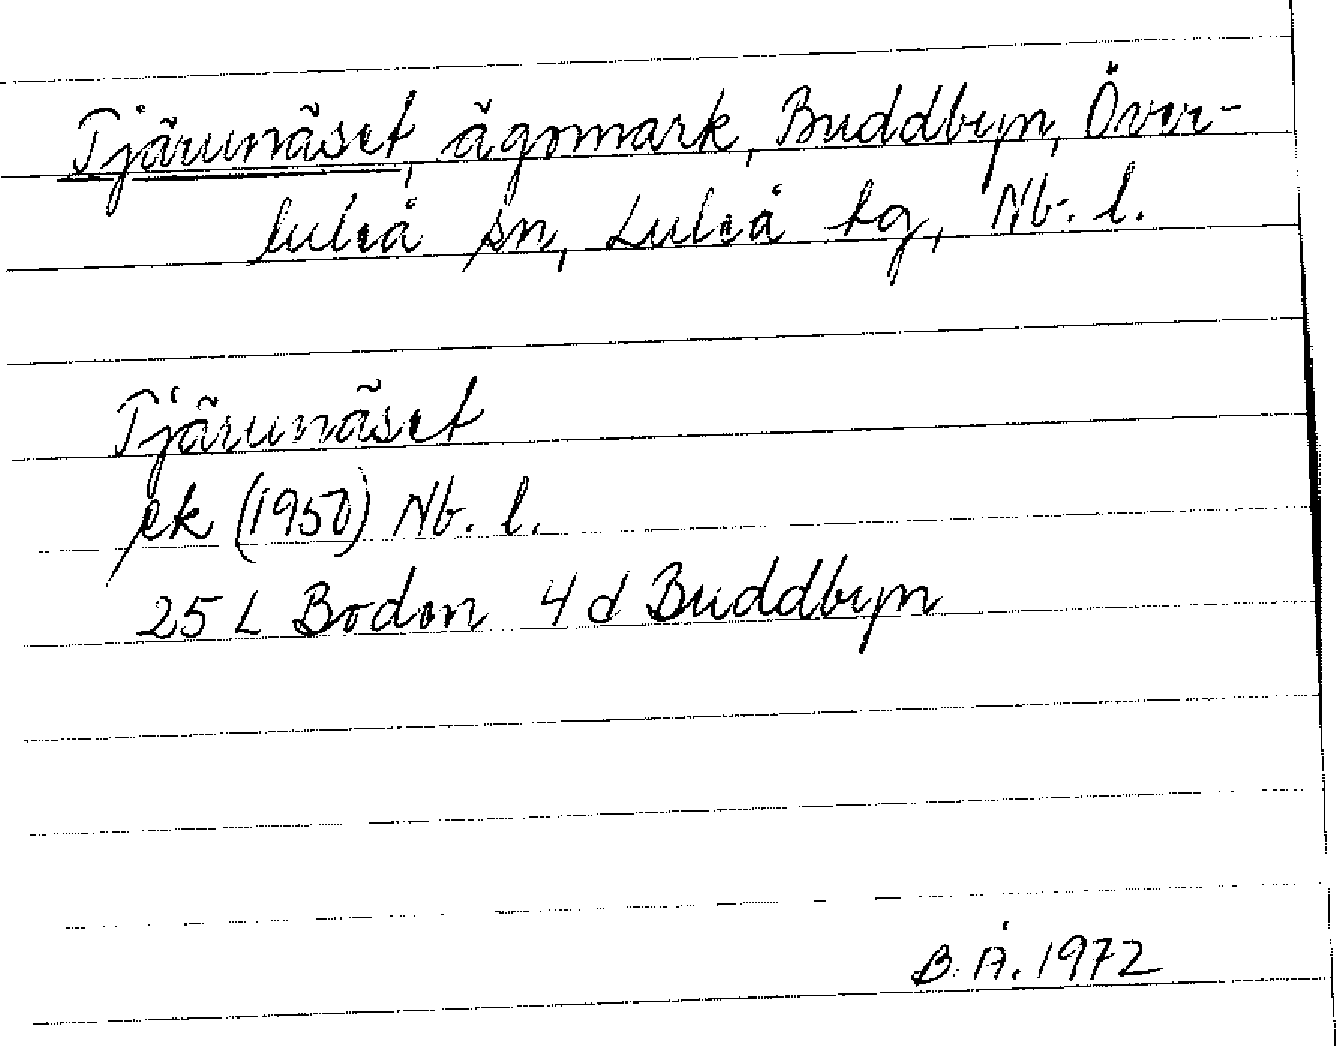 Tjärunäset, ägomark, Buddbyn, Över-
luleå sn, Luleå tg, Nb. l.
Tjärunäset
ek (1950) Nb. l.
25 L Boden 4 d Buddbyn
B. Å. 1972